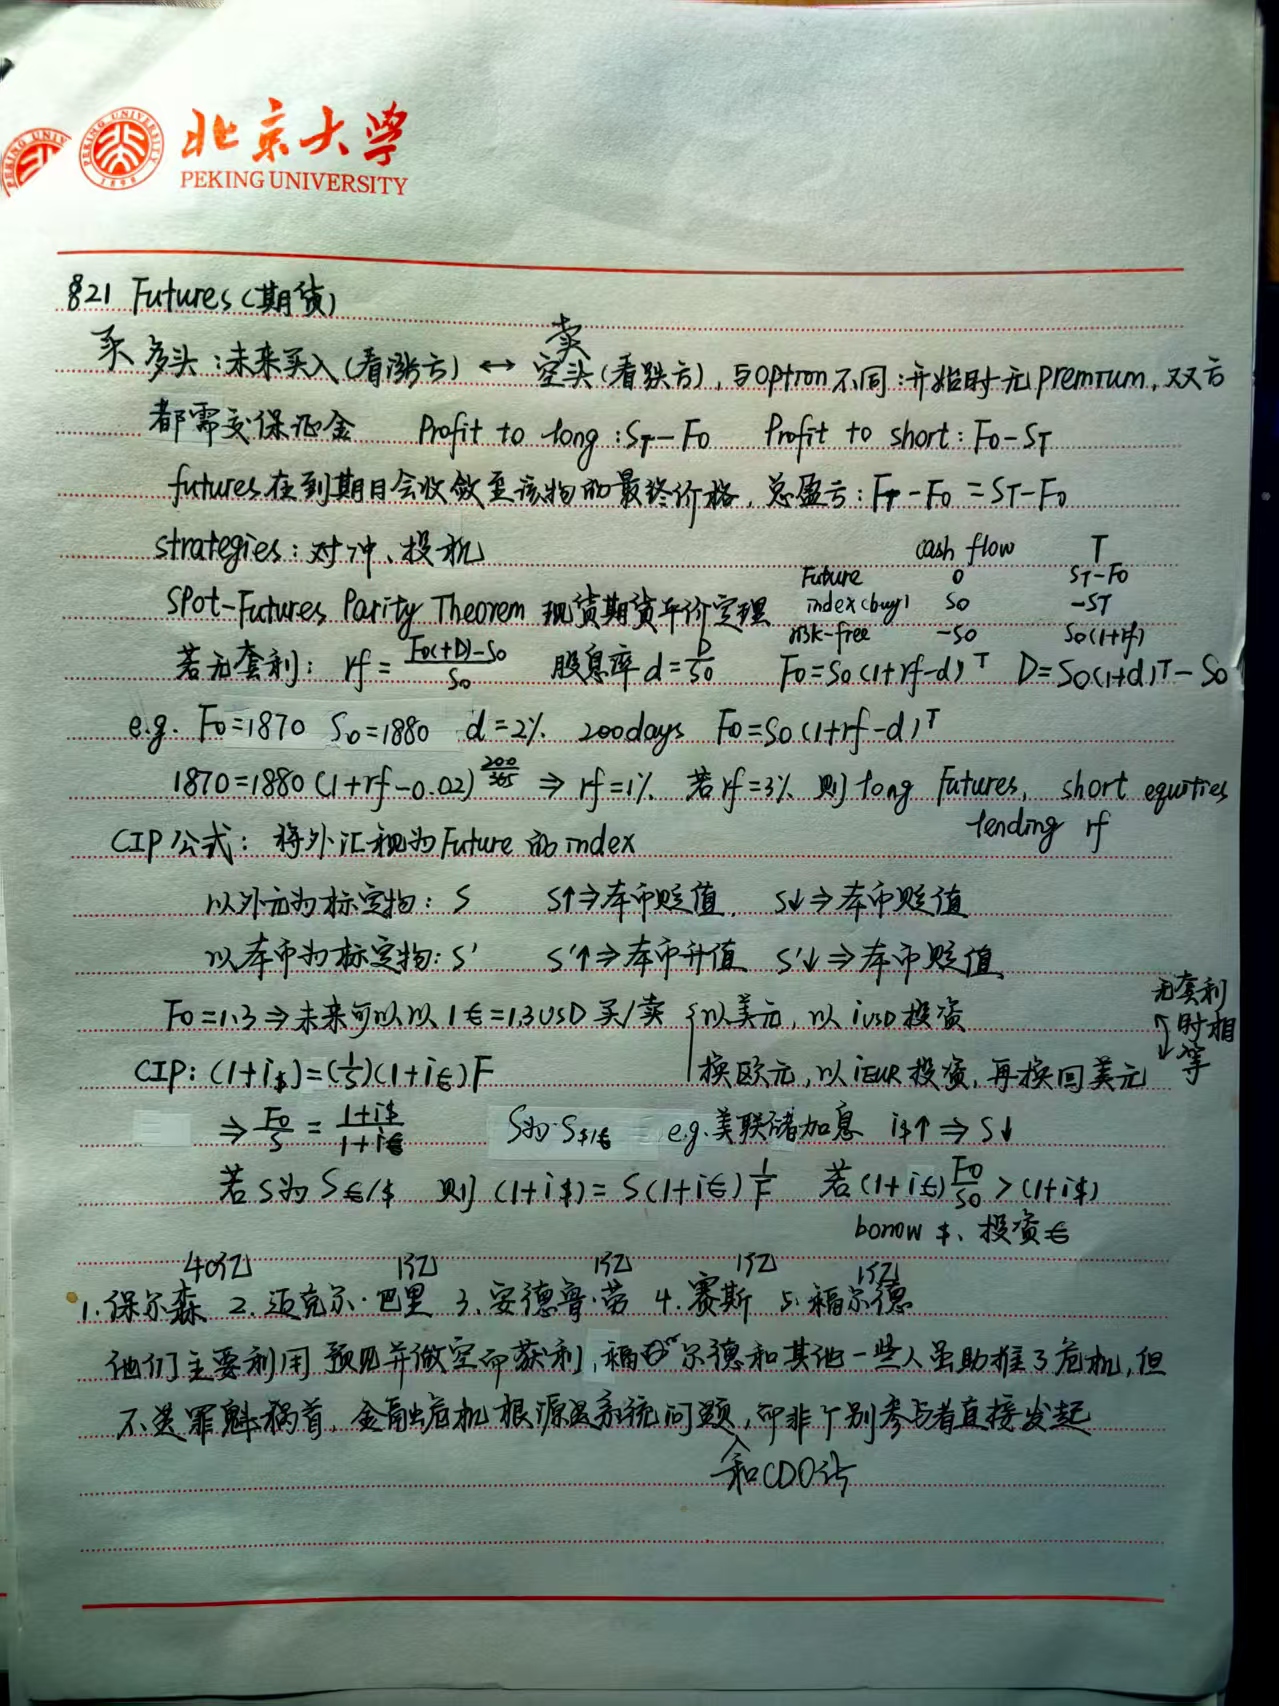 北京大学
PEKING UNIVERSITY
§21 Futures(期货)
买 多头:未来买入(看涨方) ↔ 空头(看跌方), 与option不同:开始时无premium, 双方
卖
都需交保证金 Profit to long: ST-F0 Profit to short: F0-ST
futures在到期日会收敛至该物的最终价格, 总盈亏: FT-F0=ST-F0
strategies: 对冲、投机 cash flow T
Future 0 ST-F0
Spot-Futures Parity Theorem 现货期货平价定理 index(buy) S0 -ST
risk-free -S0 S0(1+rf)
若无套利: rf = (F0(+D)-S0)/S0 股息率 d = D/S0 F0=S0(1+rf-d)^T D=S0(1+d)^T-S0
e.g. F0=1870 S0=1880 d=2% 200days F0=S0(1+rf-d)^T
1870=1880(1+rf-0.02)^(200/365) ⇒ rf=1% 若rf=3% 则long Futures, short equities
lending rf
CIP公式: 将外汇视为Future的index
以外元为标定物: S S↑⇒本币贬值 S↓⇒本币贬值
以本币为标定物: S' S'↑⇒本币升值 S'↓⇒本币贬值
F0=1.3⇒未来可以以1€=1.3USD买/卖 { 以美元, 以iUSD投资
换欧元, 以iEUR投资, 再换回美元
无套利
时相
等
CIP: (1+i$)=(1/S)(1+i€)F
⇒ F0/S = (1+i$)/(1+i€) S为S$/€ e.g.美联储加息 i$↑⇒S↓
若S为S€/$ 则(1+i$)=S(1+i€)1/F 若(1+i€)F0/S0>(1+i$)
borrow $、投资€
40亿 1亿 1亿 1亿 1亿
1.保尔森 2.迈克尔·巴里 3.安德鲁·劳 4.赛斯 5.福尔德
他们主要利用预见并做空而获利, 福尔德和其他一些人虽助推了危机, 但
不是罪魁祸首, 金融危机根源是系统问题, 而非个别参与者直接发起
和CDO等